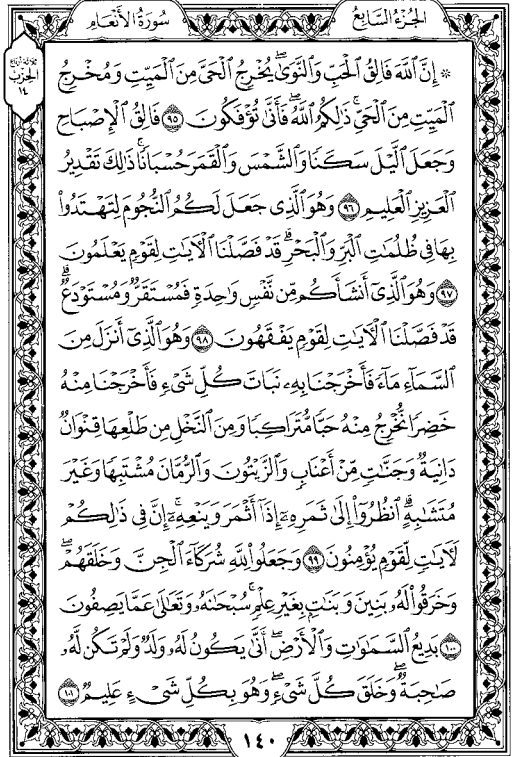 سُورَةُ الأَنْعَام
الجُزْءُ السَّابِعُ
ثلاثة أرباع
الحزب
١٤
۞ إِنَّ ٱللَّهَ فَالِقُ ٱلْحَبِّ وَٱلنَّوَىٰۖ يُخْرِجُ ٱلْحَىَّ مِنَ ٱلْمَيِّتِ وَمُخْرِجُ
ٱلْمَيِّتِ مِنَ ٱلْحَىِّۚ ذَٰلِكُمُ ٱللَّهُۖ فَأَنَّىٰ تُؤْفَكُونَ ٩٥ فَالِقُ ٱلْإِصْبَاحِ
وَجَعَلَ ٱلَّيْلَ سَكَنًا وَٱلشَّمْسَ وَٱلْقَمَرَ حُسْبَانًاۚ ذَٰلِكَ تَقْدِيرُ
ٱلْعَزِيزِ ٱلْعَلِيمِ ٩٦ وَهُوَ ٱلَّذِى جَعَلَ لَكُمُ ٱلنُّجُومَ لِتَهْتَدُوا۟
بِهَا فِى ظُلُمَٰتِ ٱلْبَرِّ وَٱلْبَحْرِۗ قَدْ فَصَّلْنَا ٱلْءَايَٰتِ لِقَوْمٍ يَعْلَمُونَ
٩٧ وَهُوَ ٱلَّذِىٓ أَنشَأَكُم مِّن نَّفْسٍ وَٰحِدَةٍ فَمُسْتَقَرٌّ وَمُسْتَوْدَعٌۗ
قَدْ فَصَّلْنَا ٱلْءَايَٰتِ لِقَوْمٍ يَفْقَهُونَ ٩٨ وَهُوَ ٱلَّذِىٓ أَنزَلَ مِنَ
ٱلسَّمَآءِ مَآءً فَأَخْرَجْنَا بِهِۦ نَبَاتَ كُلِّ شَىْءٍ فَأَخْرَجْنَا مِنْهُ
خَضِرًا نُّخْرِجُ مِنْهُ حَبًّا مُّتَرَاكِبًا وَمِنَ ٱلنَّخْلِ مِن طَلْعِهَا قِنْوَانٌ
دَانِيَةٌ وَجَنَّٰتٍ مِّنْ أَعْنَابٍ وَٱلزَّيْتُونَ وَٱلرُّمَّانَ مُشْتَبِهًا وَغَيْرَ
مُتَشَٰبِهٍۗ ٱنظُرُوٓا۟ إِلَىٰ ثَمَرِهِۦٓ إِذَآ أَثْمَرَ وَيَنْعِهِۦٓۚ إِنَّ فِى ذَٰلِكُمْ
لَءَايَٰتٍ لِّقَوْمٍ يُؤْمِنُونَ ٩٩ وَجَعَلُوا۟ لِلَّهِ شُرَكَآءَ ٱلْجِنَّ وَخَلَقَهُمْۖ
وَخَرَقُوا۟ لَهُۥ بَنِينَ وَبَنَٰتٍۭ بِغَيْرِ عِلْمٍۚ سُبْحَٰنَهُۥ وَتَعَٰلَىٰ عَمَّا يَصِفُونَ
١٠٠ بَدِيعُ ٱلسَّمَٰوَٰتِ وَٱلْأَرْضِۖ أَنَّىٰ يَكُونُ لَهُۥ وَلَدٌ وَلَمْ تَكُن لَّهُۥ
صَٰحِبَةٌۖ وَخَلَقَ كُلَّ شَىْءٍۖ وَهُوَ بِكُلِّ شَىْءٍ عَلِيمٌ ١٠١
١٤٠